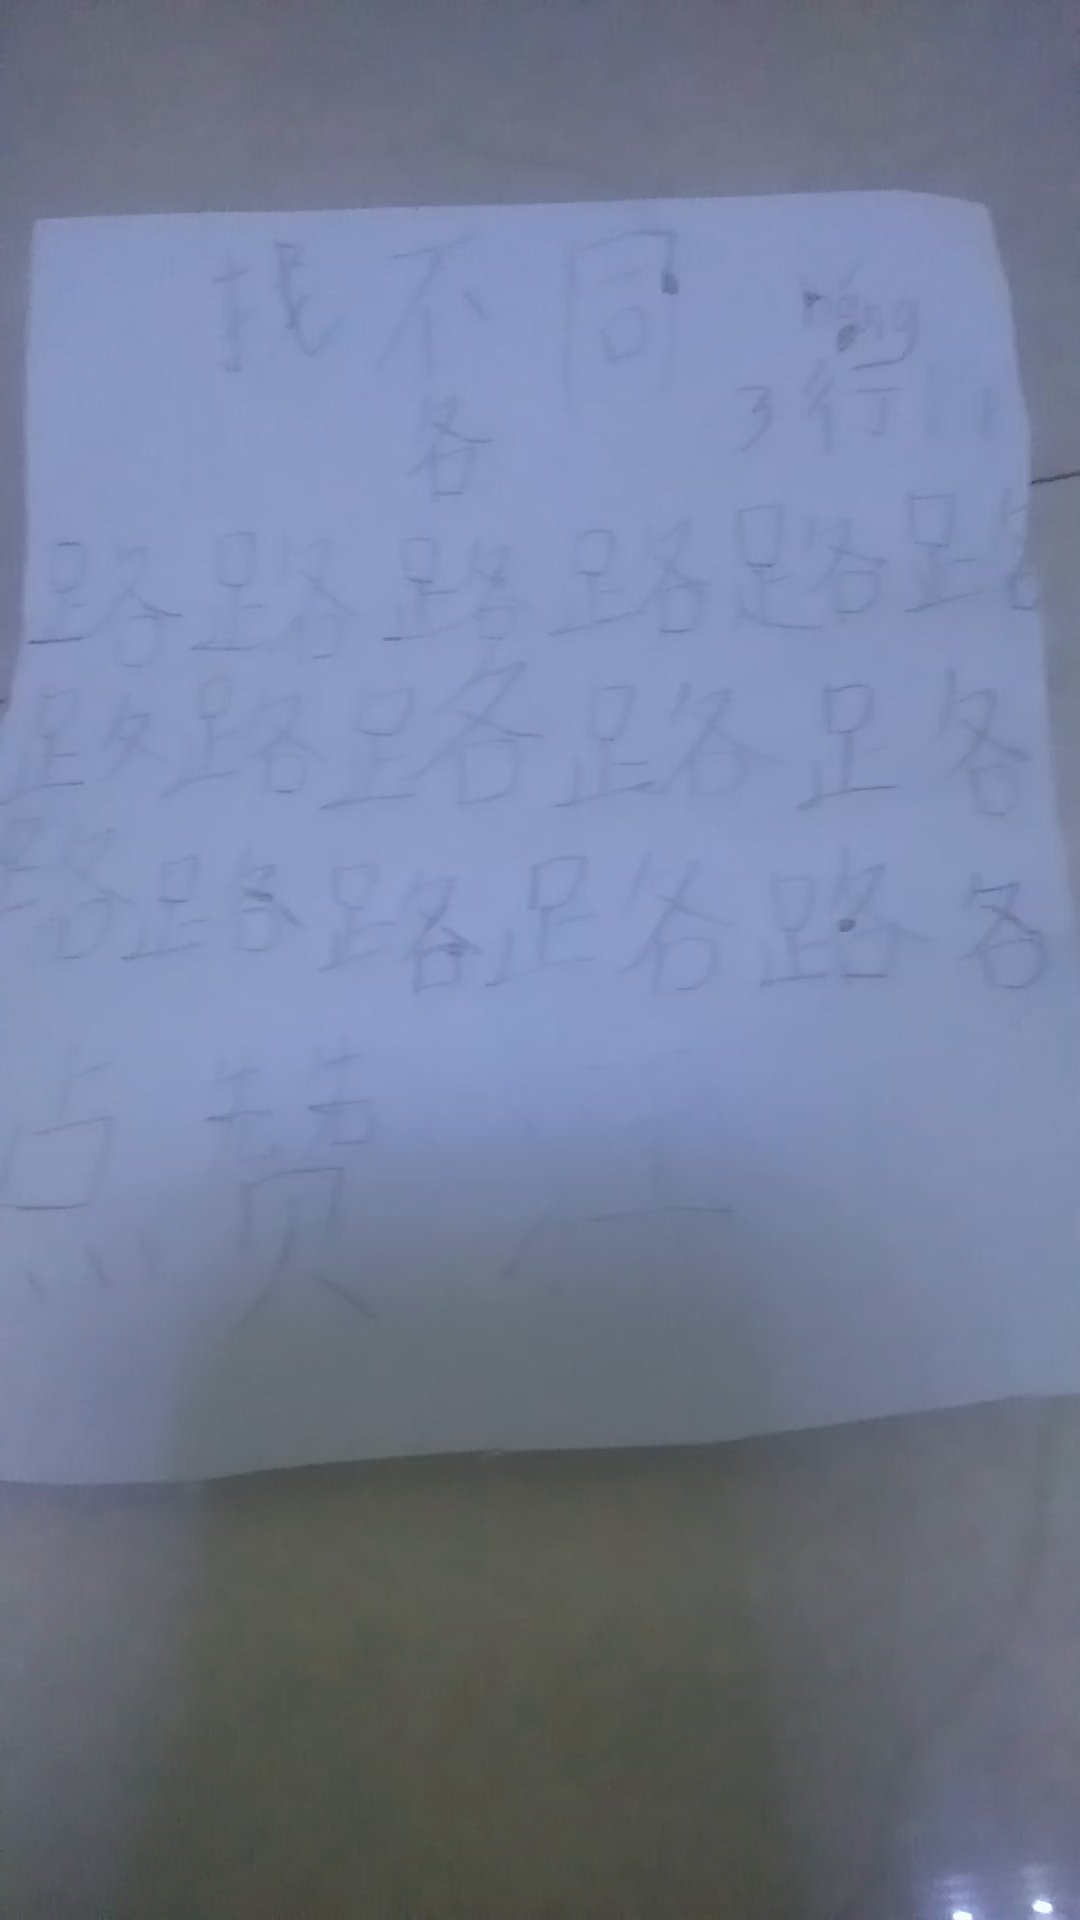 找不同
háng
各 3行
路路路路路路
路路路路路
路路路路路各
点赞